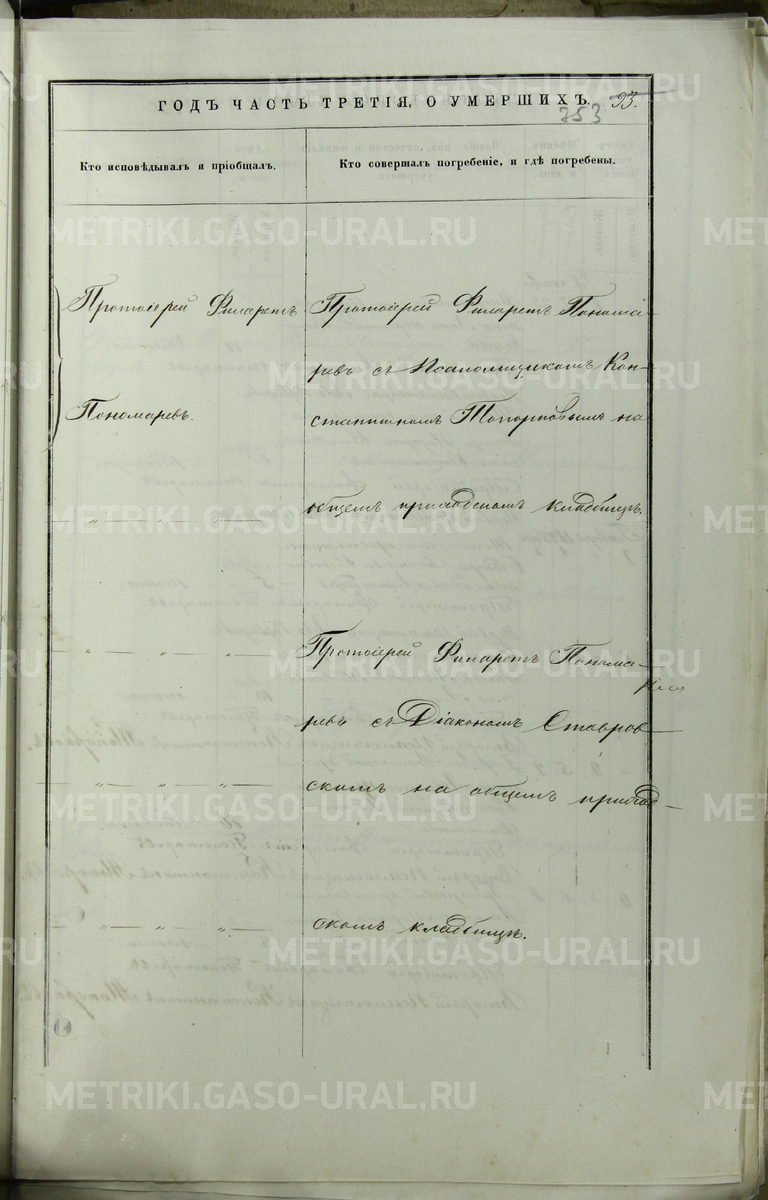 ГОДЪ ЧАСТЬ ТРЕТІЯ, О УМЕРШИХЪ. 93.
253
Кто исповѣдывалъ и пріобщалъ.
Кто совершалъ погребеніе, и гдѣ погребены.
Протоіерей Филаретъ
Пономаревъ.
" — " — " —
" — " — " —
" — " — " —
" — " — " —
Протоіерей Филаретъ Понома-
ревъ съ Псаломщикомъ Кон-
стантиномъ Топорковымъ на
общемъ приходскомъ кладбищѣ.
Протоіерей Филаретъ Понома-
ревъ съ Діакономъ Ставров-
скимъ на общемъ приход-
скомъ кладбищѣ.
METRIKI.GASO-URAL.RU